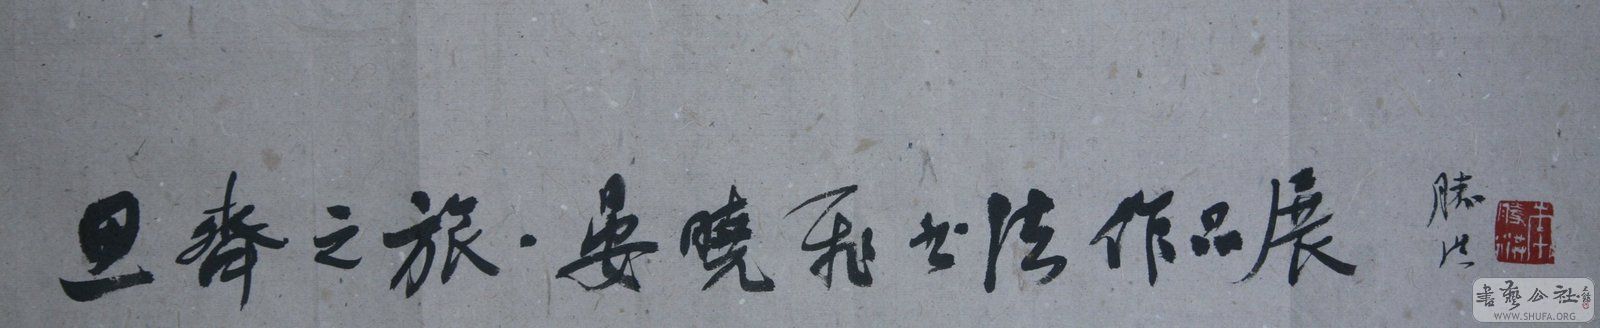 思齊之旅·晏曉飛书法作品展
勝洪
書藝公社
WWW.SHUFA.ORG